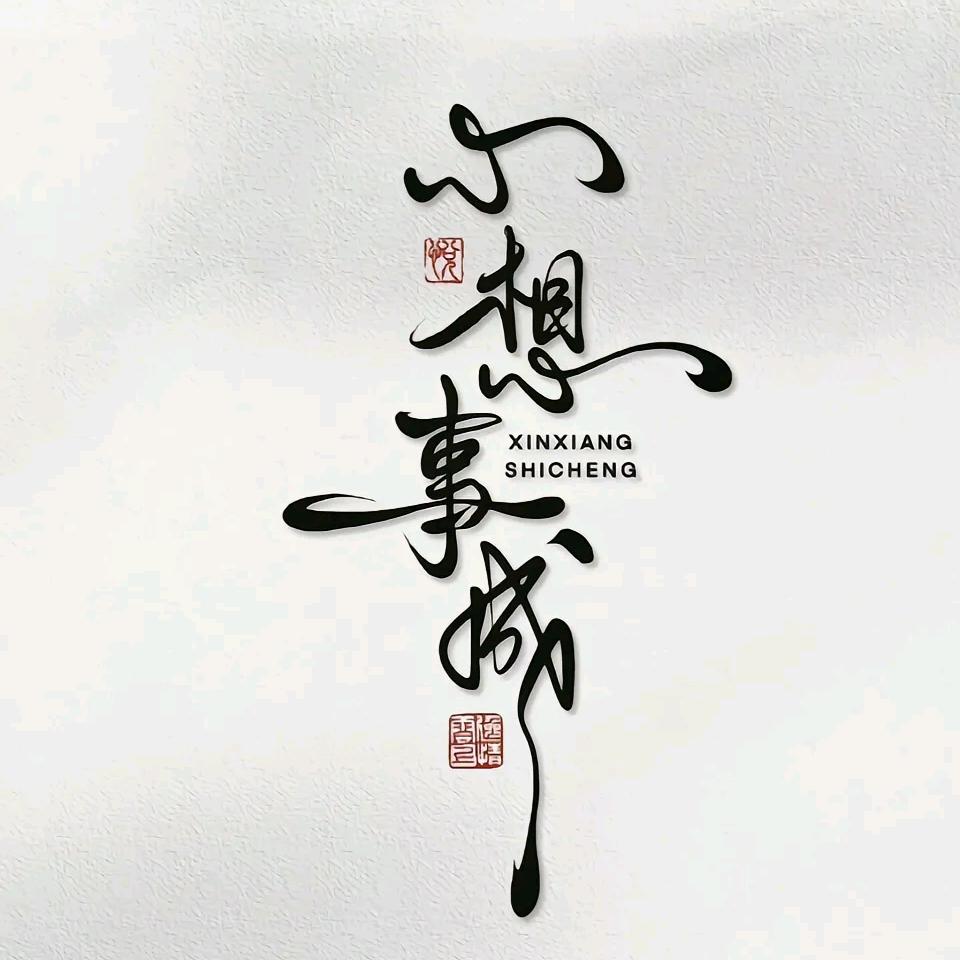 心
悦
想
事
XINXIANG
SHICHENG
成